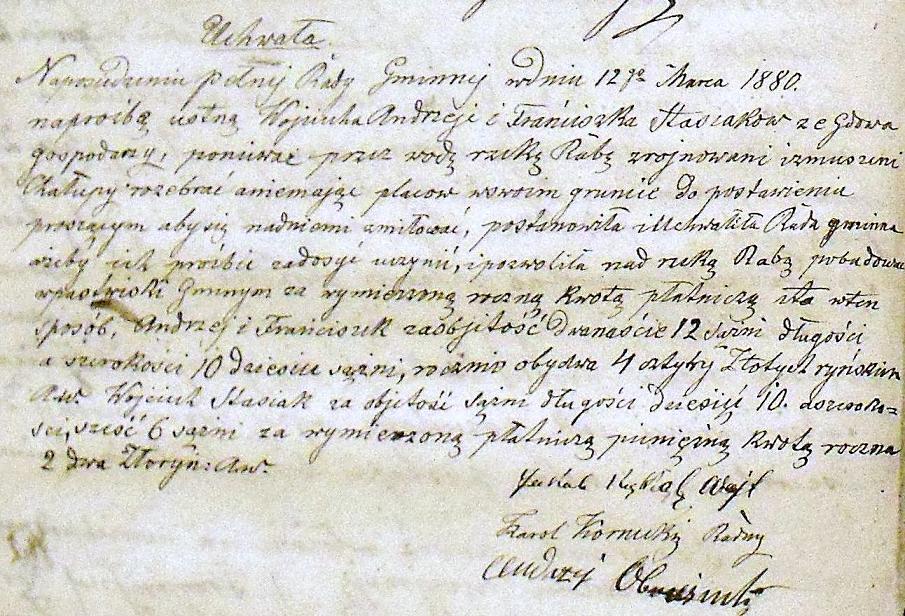 Uchwała.
Naposiedzeniu pełnij Rady Gminnej wdniu 12go Marca 1880.
naprośbę ustną Wojciecha Andrzeja i Franciszka Stasiaków ze Gdowa
gospodarzy, ponieważ przez wodę rzekę Rabę zrojnowani izmuszeni
Chałupy rozebrać aniemając placow wswoim gruncie do postawienia
proszącym abysię nadniemi zmiłować, postanowiła iUchwaliła Rada gminna
ażeby ich prośbie zadosyć uczynić, ipozwoliła nad rzeką Rabą pobudować
wpastwiski Gminnym za wymierzoną roczną kwotą płatniczą iła wten
sposób, Andrzej i Franciszek zaobjętość dwanaście 12 sążni długości
a szerokości 10 dziesięć sążni, rocznie obydwa 4 cztyry Złotych ryńskich
Aw. Wojciech Stasiak za objętość sążni długości dziesięć 10. aszeroko=
ści, sześć 6 sążni za wymierzoną płatniczą pieniężną kwotą roczna
2 dwa Złoryn: Aw.
Wójt
Karol Kornecki Radny
Andrzej